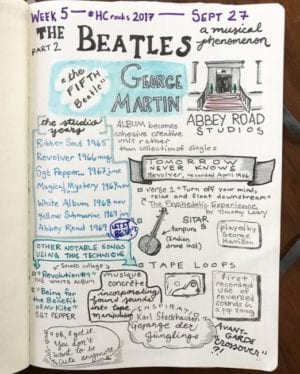 WEEK 5 — #HCrocks 2017 — SEPT 27
THE BEATLES
PART 2
a musical
phenomenon
"the
FIFTH
Beatle"
GEORGE
MARTIN
ABBEY ROAD
STUDIOS
the studio
years
Rubber Soul 1965
Revolver 1966 aug
Sgt Pepper 1967 june
Magical Mystery 1967 nov
White Album 1968 nov
Yellow Submarine 1969 jan
Abbey Road 1969
LET IT
BE
ALBUM becomes
cohesive creative
unit rather
than collection of singles
TOMORROW
NEVER KNOWS
Revolver, recorded April 1966
verse 1 "Turn off your mind,
relax and float downstream"
The Psychedelic Experience
by Timothy Leary
SITAR
&
tampura
(Indian
drone inst)
played by
George
Harrison
OTHER NOTABLE SONGS
USING THIS TECHNIQUE
sound collage
Revolution 9
WHITE ALBUM
"Being for
the Benefit
of Mr Kite"
SGT PEPPER
TAPE LOOPS
musique
concrete
incorporating
found sounds
into tape
manipulation
first
recorded
use of
reversed
sounds in
a pop song
INSPIRATION
Karl Stockhausen
Gesange der
Junglings
AVANT-
GARDE
CROSSOVER
?!
oh, I get it
you don't
want to be
cute anymore